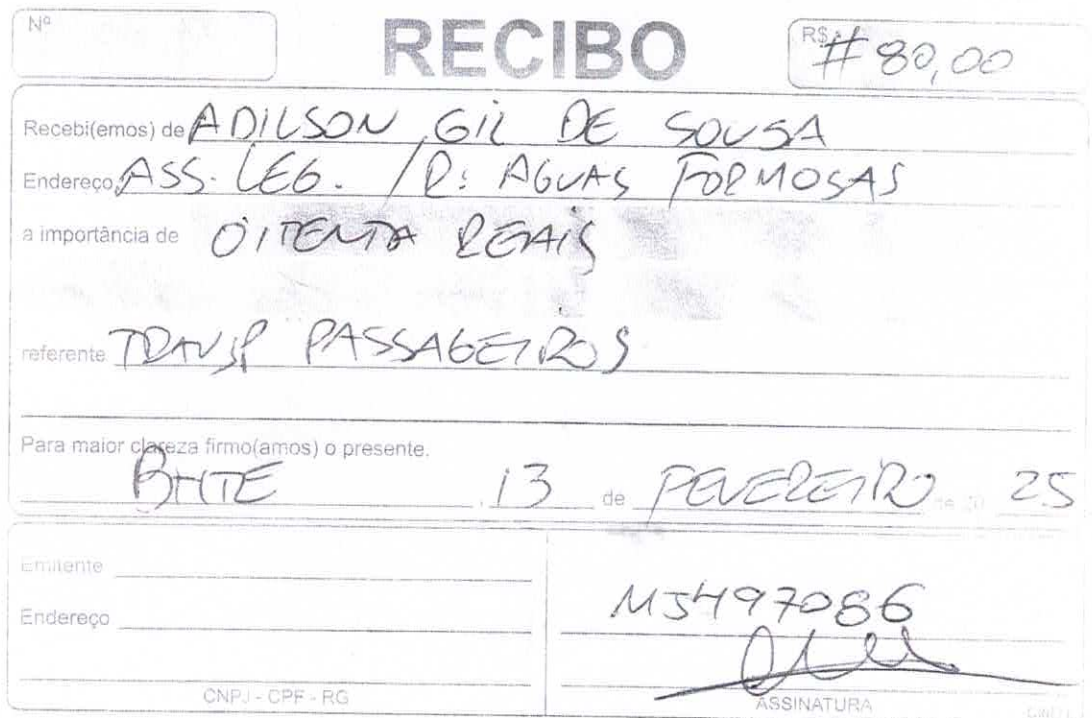 Nº
RECIBO
R$ # 80,00
Recebi(emos) de ADILSON GIL DE SOUSA
Endereço ASS. LEG. / R: AGUAS FORMOSAS
a importância de OITENTA REAIS
referente TRANSP PASSAGEIROS
Para maior clareza firmo(amos) o presente.
BHTE, 13 de FEVEREIRO de 20 25
Emitente
Endereço
M5497086
CNPJ - CPF - RG
ASSINATURA